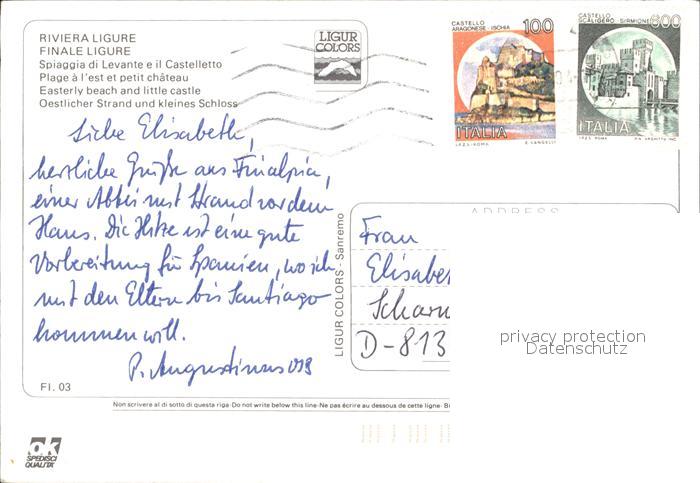 RIVIERA LIGURE
FINALE LIGURE
Spiaggia di Levante e il Castelletto
Plage à l'est et petit château
Easterly beach and little castle
Oestlicher Strand und kleines Schloss
LIGUR
COLORS
CASTELLO
ARAGONESE - ISCHIA
100
ITALIA
I.P.Z.S. - ROMA E. VANGELLI
CASTELLO
SCALIGERO SIRMIONE
600
ITALIA
I.P.Z.S. ROMA
Liebe Elisabeth,
herzliche Grüße aus Finalpia,
einer Abtei mit Strand vor dem
Haus. Die Hitze ist eine gute
Vorbereitung für Spanien, wo ich
mit den Eltern bis Santiago
kommen will.
P. Augustinus OSB
LIGUR COLORS - Sanremo
ADDRESS
Frau
Elisabe
Scharn
D-813
privacy protection
Datenschutz
FI. 03
Non scrivere al di sotto di questa riga-Do not write below this line-Ne pas écrire au dessous de cette ligne-
OK
SPEDISCI
QUALITÀ